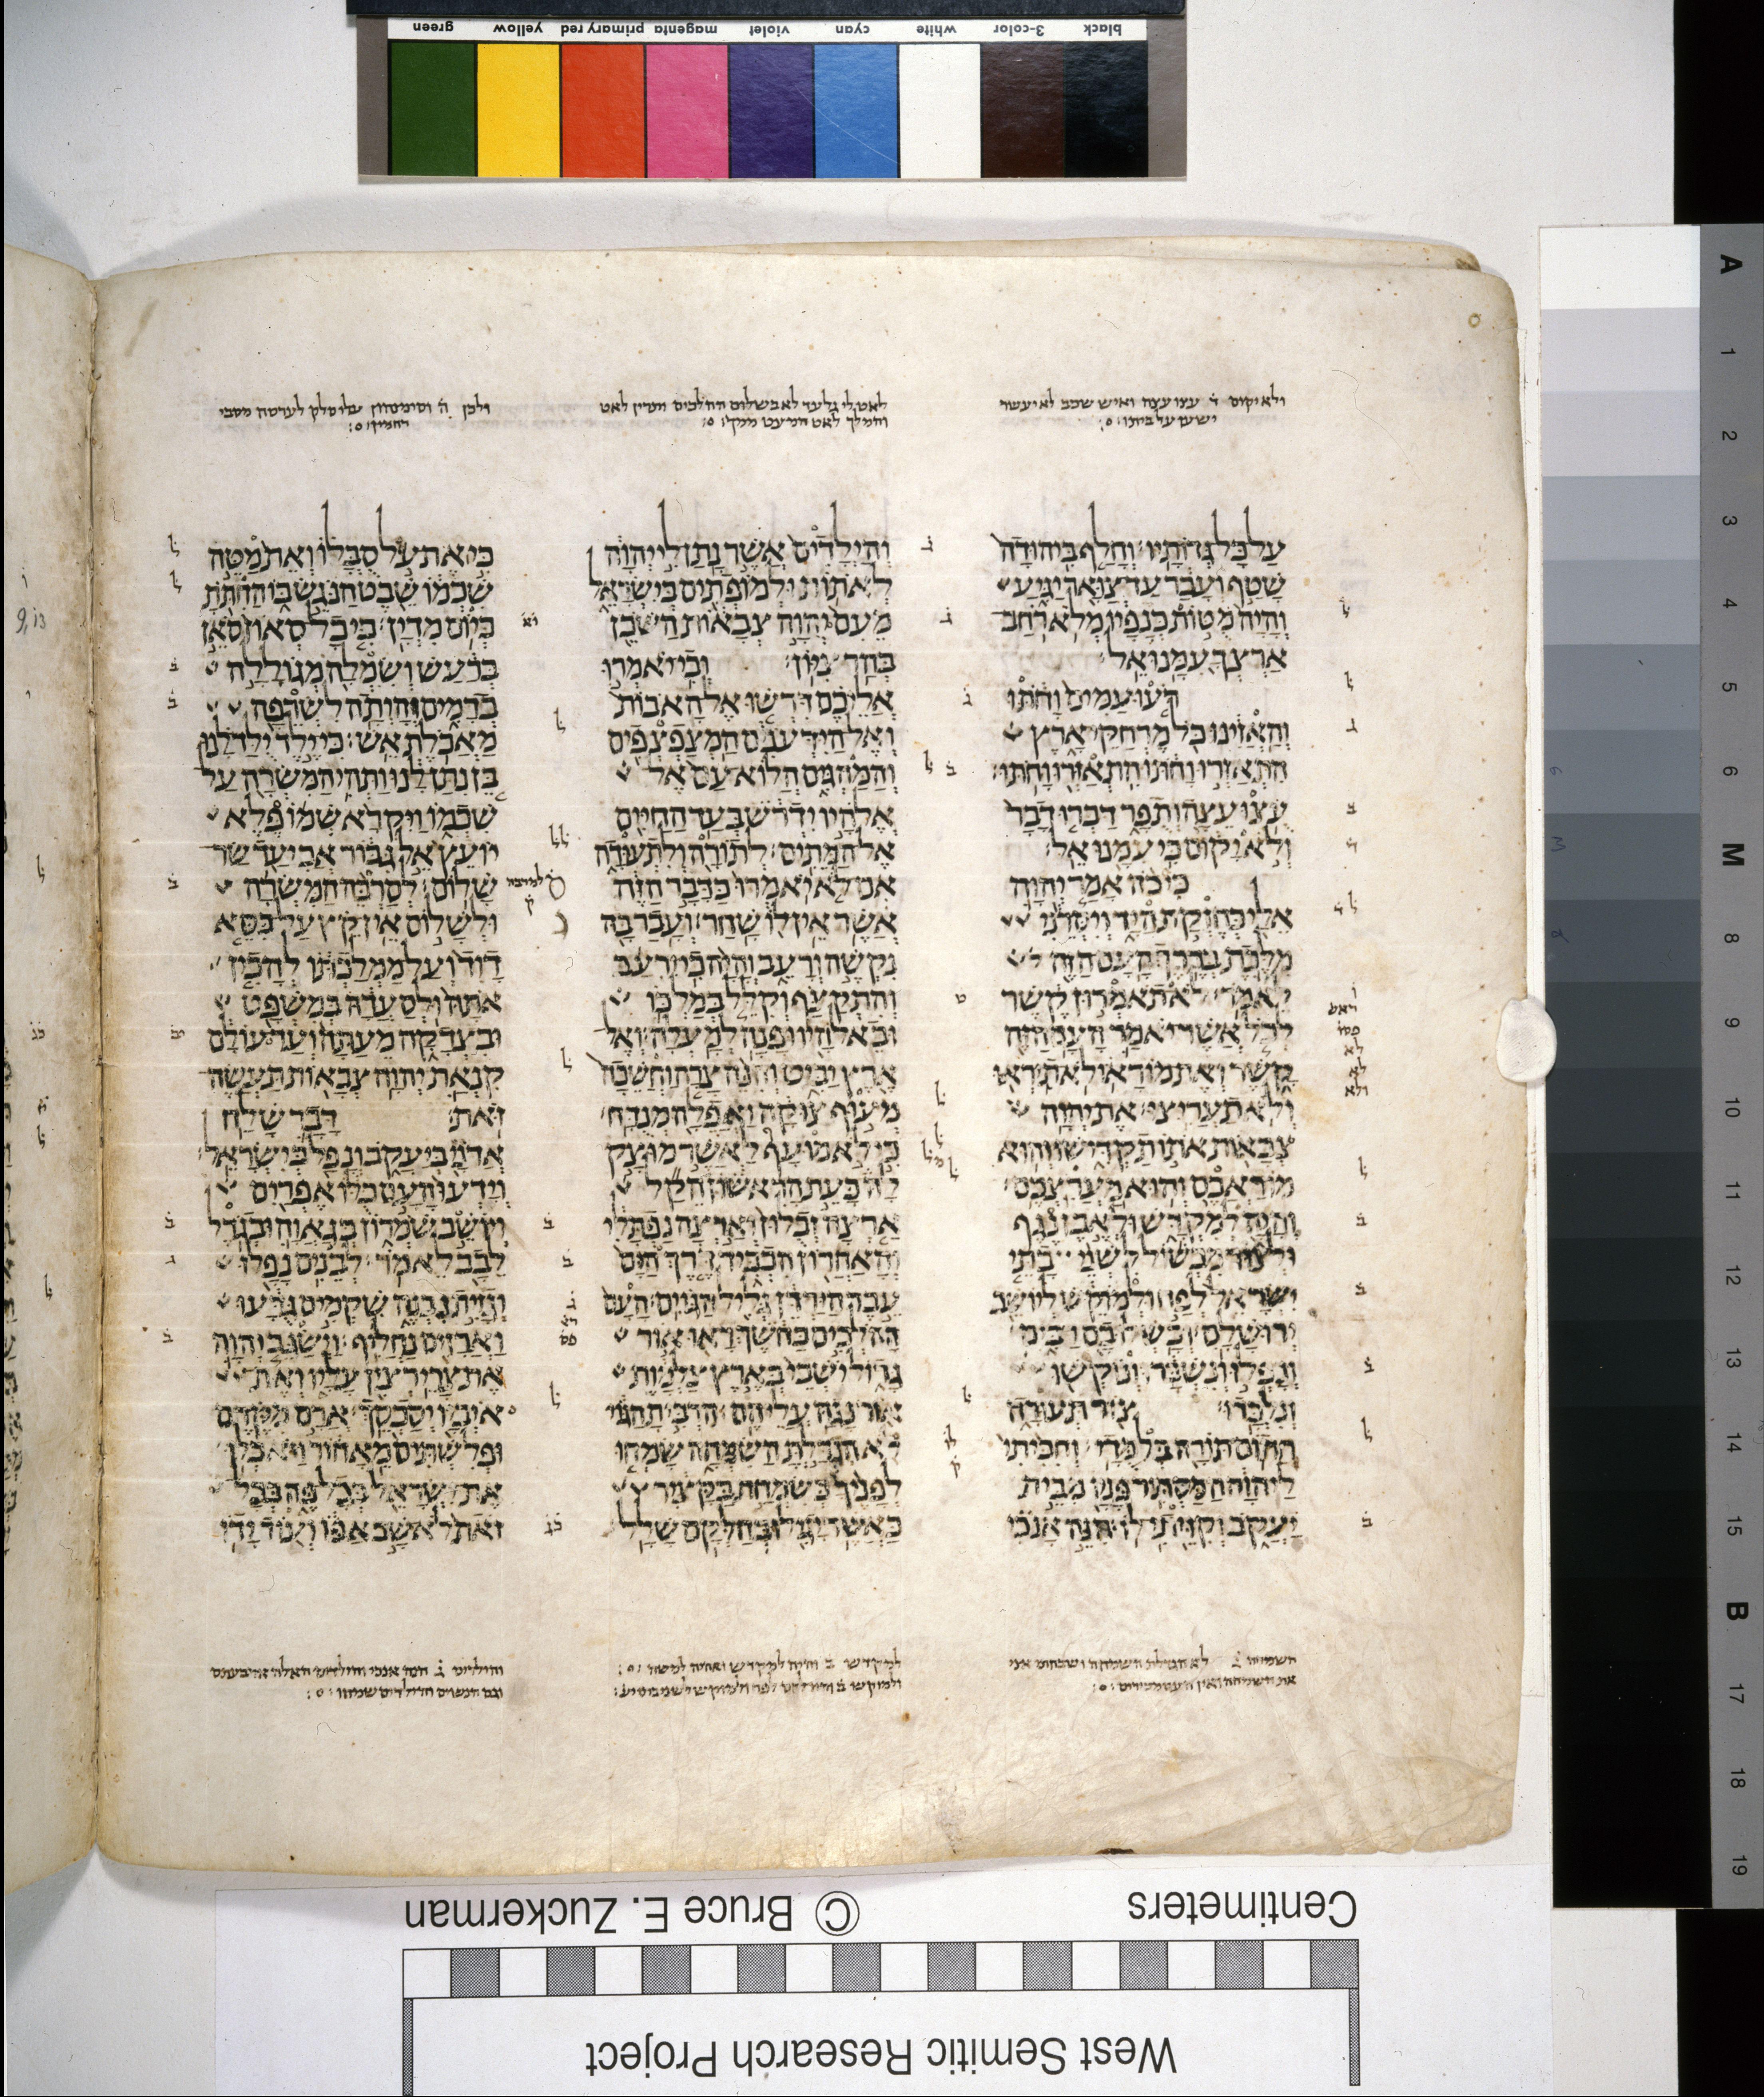 green yellow primary red magenta violet cyan white 3-color black
ולא יקום ד עצו עצה ואיש שכב לא יעשר
על כל גדותיו׃ וחלף ביהודה
שטף ועבר עד צואר יגיע
והיה מטות כנפיו מלא רחב
ארצך עמנו אל׃
רעו עמים וחתו
והאזינו כל מרחקי ארץ
התאזרו וחתו התאזרו וחתו׃
עצו עצה ותפר דברו דבר
ולא יקום כי עמנו אל׃
כי כה אמר יהוה
אלי כחזקת היד ויסרני
מלכת בדרך העם הזה
לאמר׃ לא תאמרון קשר
לכל אשר יאמר העם הזה
קשר ואת מוראו לא תיראו
ולא תעריצו׃ את יהוה
צבאות אתו תקדישו והוא
מוראכם והוא מערצכם׃
והיה למקדש ולאבן נגף
ולצור מכשול לשני בתי
ישראל לפח ולמוקש ליושב
ירושלם׃ וכשלו בם רבים
ונפלו ונשברו ונוקשו
ונלכדו׃ צור תעודה
חתום תורה בלמדי׃ וחכיתי
ליהוה המסתיר פניו מבית
יעקב וקויתי לו׃ הנה אנכי
והילדים אשר נתן לי יהוה
לאתות ולמופתים בישראל
מעם יהוה צבאות השכן
בהר ציון׃ וכי יאמרו
אליכם דרשו אל האבות
ואל הידענים המצפצפים
והמהגים הלוא עם אל
אלהיו ידרש בעד החיים
אל המתים׃ לתורה ולתעודה
אם לא יאמרו כדבר הזה
אשר אין לו שחר׃ ועבר בה
נקשה ורעב והיה כי ירעב
והתקצף וקלל במלכו
ובאלהיו ופנה למעלה׃ ואל
ארץ יביט והנה צרה וחשכה
מעוף צוקה ואפלה מנדח׃
כי לא מועף לאשר מוצק
לה כעת הראשון הקל
ארצה זבלון וארצה נפתלי
והאחרון הכביד דרך הים
עבר הירדן גליל הגוים׃ העם
ההלכים בחשך ראו אור
גדול ישבי בארץ צלמות
אור נגה עליהם׃ הרבית הגוי
לא הגדלת השמחה שמחו
לפניך כשמחת בקציר
כאשר יגילו בחלקם שלל׃
כי את על סבלו ואת מטה
שכמו שבט הנגש בו החתת
כיום מדין׃ כי כל סאון סאן
ברעש ושמלה מגוללה
בדמים והיתה לשרפה
מאכלת אש׃ כי ילד ילד לנו
בן נתן לנו ותהי המשרה על
שכמו ויקרא שמו פלא
יועץ אל גבור אבי עד שר
שלום׃ לםרבה המשרה
ולשלום אין קץ על כסא
דוד ועל ממלכתו להכין
אתה ולסעדה במשפט
ובצדקה מעתה ועד עולם
קנאת יהוה צבאות תעשה
זאת׃ דבר שלח
אדני ביעקב ונפל בישראל׃
וידעו העם כלו אפרים
ויושב שמרון בגאוה ובגדל
לבב לאמר׃ לבנים נפלו
וגזית נבנה שקמים גדעו
וארזים נחליף׃ וישגב יהוה
את צרי רצין עליו ואת
איביו יסכסך׃ ארם מקדם
ופלשתים מאחור ויאכלו
את ישראל בכל פה בכל
זאת לא שב אפו ועוד ידו
A 1 2 3 4 5 6 M 8 9 10 11 12 13 14 15 B 17 18 19
Centimeters © Bruce E. Zuckerman
West Semitic Research Project